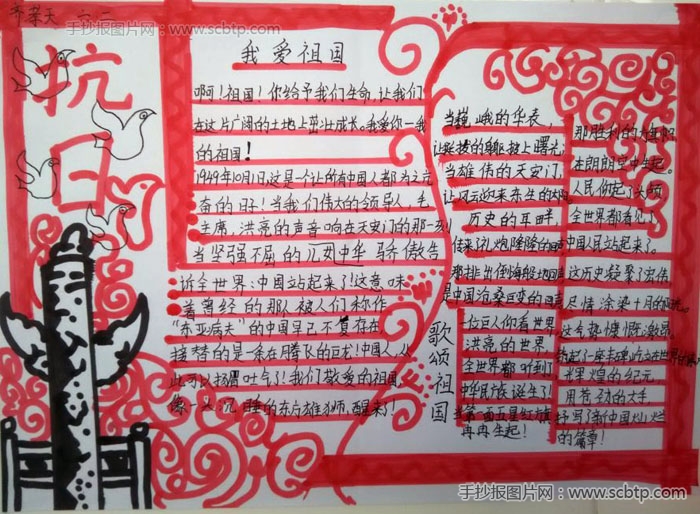 齐荣天 六一
手抄报图片网：www.scbtp.com
抗
日
我爱祖国
啊！祖国！你给予我们生命，让我们
在这片广阔的土地上茁壮成长。我爱你—我
的祖国！
1949年10月1日，这是个让所有中国人都为之亢
奋的日子！当我们伟大的领导人，毛
主席洪亮的声音响在天安门的那一刻
当坚强不屈的儿女中华骄傲告
诉全世界：中国站起来了！这意味
着曾经的那个被人们称作
“东亚病夫”的中国早已不复存在
接替的是一条在腾飞的巨龙！中国人，从
此可以扬眉吐气了！我们敬爱的祖国，
像一头沉睡的东方雄狮，醒来！
歌颂祖国
当巍峨的华表，
让挺拔的身躯披上曙光；
当雄伟的天安门，
让风云迎来东生的太阳
历史的耳畔
传来了礼炮隆隆的
那排山倒海般地回声
是中国沧桑巨变的回声
一位巨人仰看世界
洪亮的世界，
全世界都听到了
中华民族诞生了！
当第一面五星红旗
冉冉生起！
那胜利的
在朗朗空中生起。
人民仰起了头颅
全世界都看见了
中国人民站起来了。
这历史凝聚了宏伟
尽情涂染十月的
这气势慷慨激昂
筑起了一座丰碑屹立在世界
辉煌的纪元，
用苍劲的大手
抒写了新中国灿烂
的篇章！
手抄报图片网：www.scbtp.com